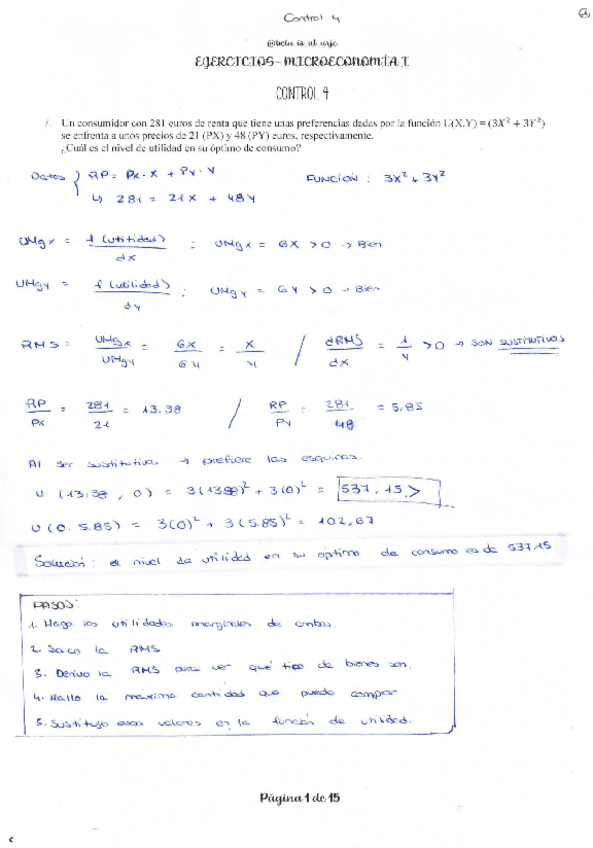 Control 4
EJERCICIOS - MICROECONOMÍA I
CONTROL 4
1. Un consumidor con 281 euros de renta que tiene unas preferencias dadas por la función U(X,Y) = (3X² + 3Y²)
se enfrenta a unos precios de 21 (PX) y 48 (PY) euros, respectivamente.
¿Cuál es el nivel de utilidad en su óptimo de consumo?
Datos { RP = Px · X + Py · Y FUNCIÓN : 3X² + 3Y²
↳ 281 = 21X + 48Y
UMgx = f (utilidad) / dx : UMgx = 6X > 0 → Bien
UMgy = f (utilidad) / dy : UMgy = 6Y > 0 → Bien
RMS = UMgx / UMgy = 6X / 6Y = X / Y / dRMS / dx = 1 / Y > 0 → SON SUSTITUTIVOS
RP / Px = 281 / 21 = 13.38 / RP / Py = 281 / 48 = 5.85
Al ser sustitutivos → prefiere las esquinas.
U (13.38, 0) = 3(13.38)² + 3(0)² = 537,15 >
U (0, 5.85) = 3(0)² + 3(5.85)² = 102,67
Solución : el nivel de utilidad en su óptimo de consumo es de 537,15
PASOS:
1. Hago las utilidades marginales de ambos.
2. Saco la RMS
3. Derivo la RMS para ver qué tipo de bienes son.
4. Hallo la máxima cantidad que puedo comprar
5. Sustituyo esos valores en la función de utilidad.
Página 1 de 15